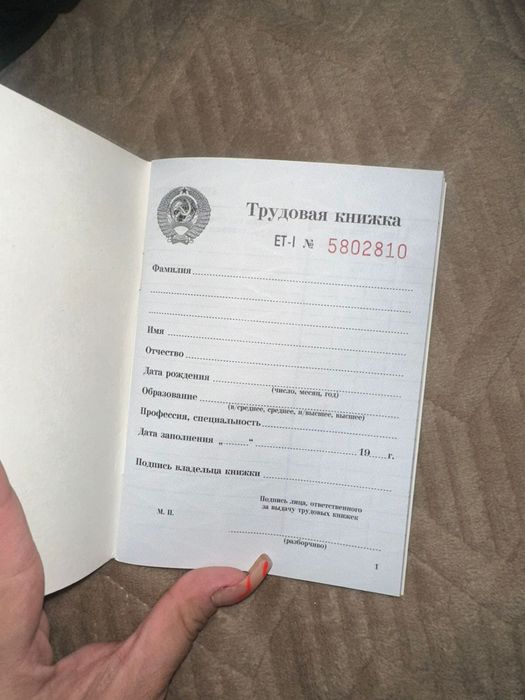 Трудовая книжка
ЕТ-I № 5802810
Фамилия
Имя
Отчество
Дата рождения
(число, месяц, год)
Образование
(н/среднее, среднее, н/высшее, высшее)
Профессия, специальность
Дата заполнения „ “ 19 г.
Подпись владельца книжки
Подпись лица, ответственного
за выдачу трудовых книжек
М. П.
(разборчиво)
1